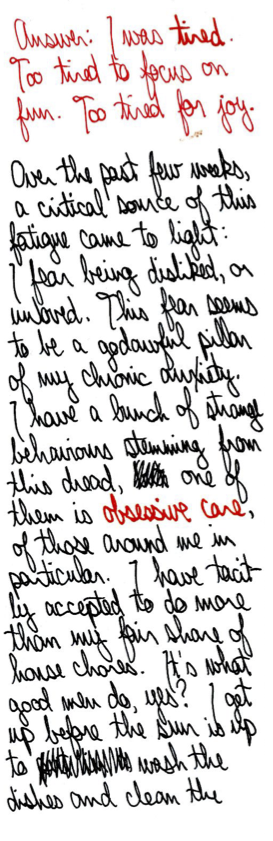 Answer: I was tired.
Too tired to focus on
fun. Too tired for joy.
Over the past few weeks,
a critical source of this
fatigue came to light:
I fear being disliked, or
unloved. This fear seems
to be a godawful pillar
of my chronic anxiety.
I have a bunch of strange
behaviours stemming from
this dread, one of
them is obsessive care,
of those around me in
particular. I have tacit-
ly accepted to do more
than my fair share of
house chores. It's what
good men do, yes? I get
up before the sun is up
to wash the
dishes and clean the